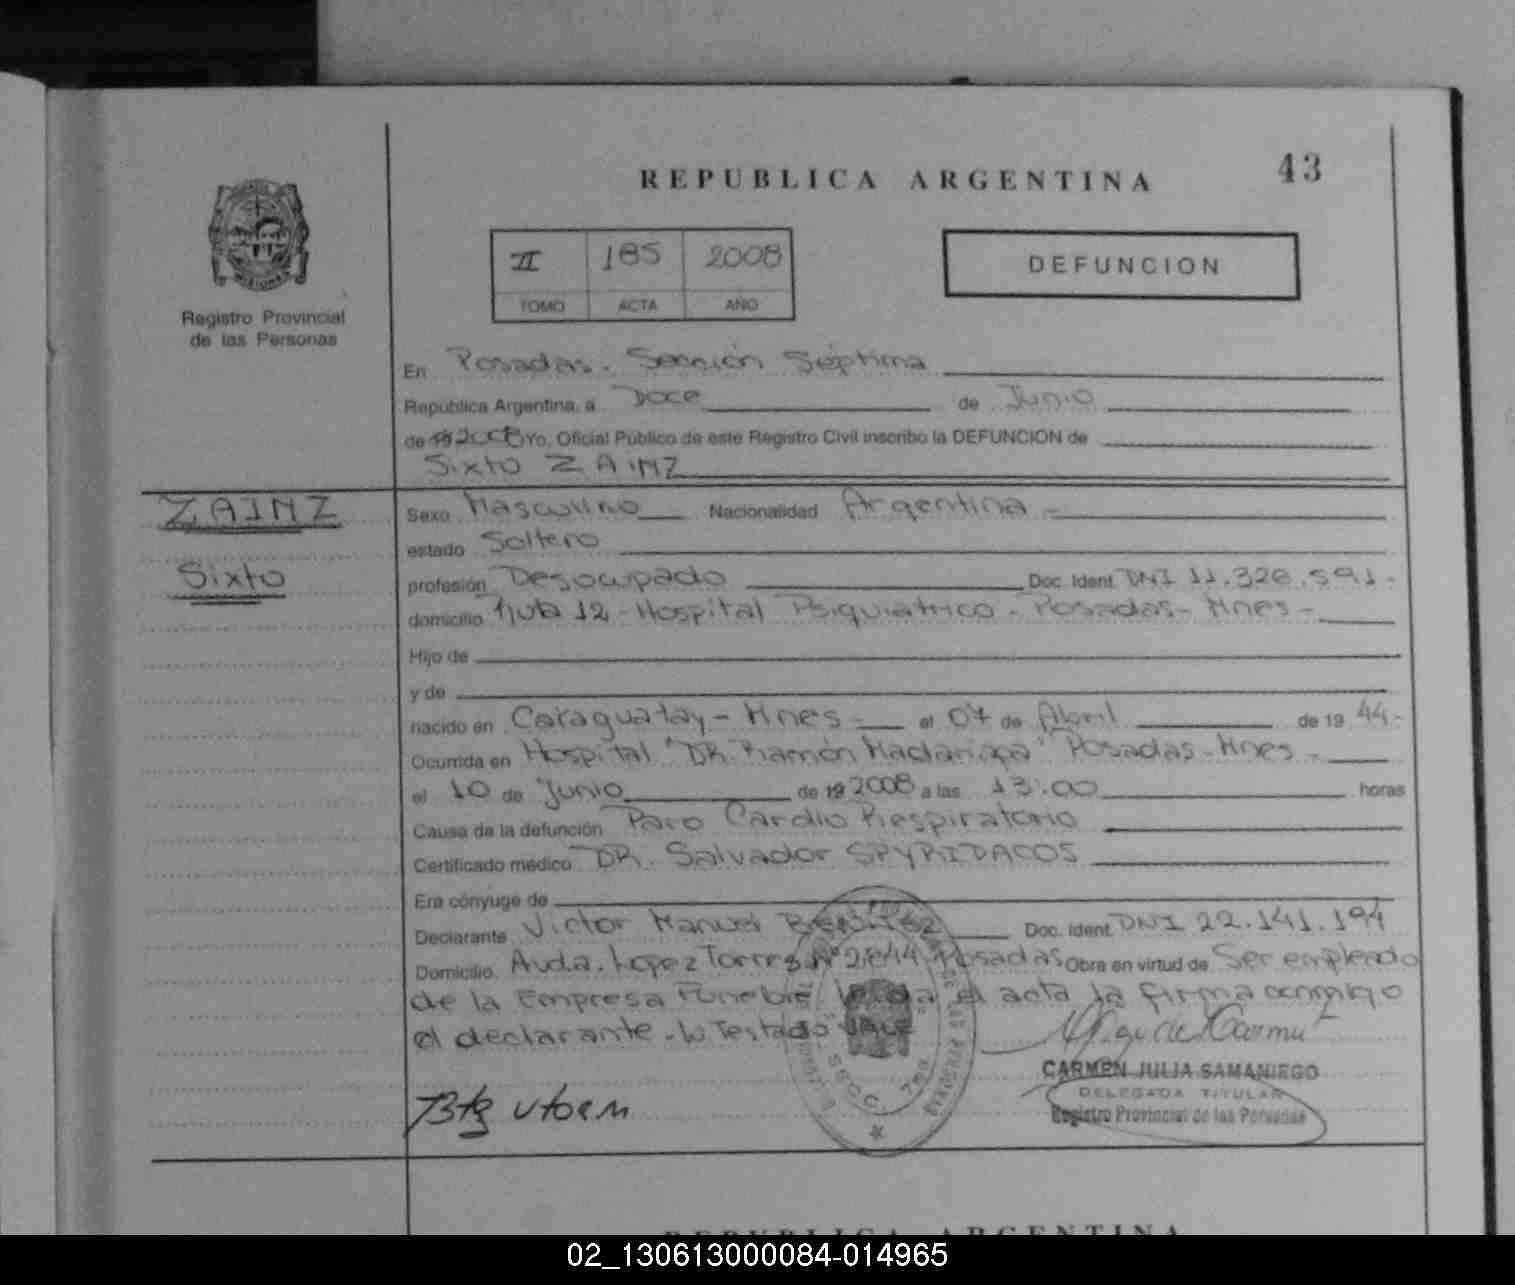 REPUBLICA ARGENTINA
43
II 185 2008
TOMO ACTA AÑO
DEFUNCION
MISIONES
Registro Provincial
de las Personas
En Posadas - Sección Séptima
República Argentina, a Doce de Junio
de 19 2008 Yo, Oficial Público de este Registro Civil inscribo la DEFUNCION de
Sixto ZAINZ
ZAINZ
Sixto
Sexo Masculino Nacionalidad Argentina -
estado Soltero
profesión Desocupado Doc. Ident. DNI 11.326.591-
domicilio Ruta 12 - Hospital Psiquiatrico - Posadas - Mnes -
Hijo de
y de
nacido en Caraguatay - Mnes - el 07 de Abril de 19 44-
Ocurrida en Hospital "DR. Ramón Madariaga" Posadas - Mnes -
el 10 de Junio de 19 2008 a las 13:00 horas
Causa de la defunción Paro Cardio Respiratorio
Certificado médico DR. Salvador SPYRIDACOS
Era cónyuge de
Declarante Victor Manuel BENITEZ Doc. Ident. DNI 22.141.194
Domicilio Avda. Lopez Torres Nº 2844 Posadas Obra en virtud de Ser empledo
de la Empresa Funebre leida el acta la firma conmigo
el declarante - lo Testado vale
CARMEN JULIA SAMANIEGO
DELEGADA TITULAR
Registro Provincial de las Personas
REPUBLICA ARGENTINA
02_130613000084-014965